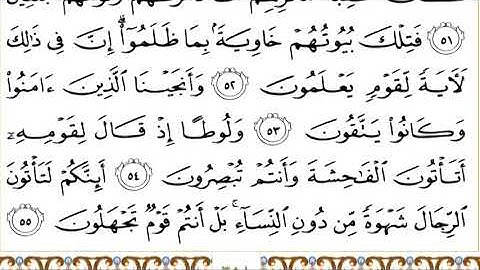 ﴿٥١﴾ فَتِلْكَ بُيُوتُهُمْ خَاوِيَةًۢ بِمَا ظَلَمُوٓا۟ ۗ إِنَّ فِى ذَٰلِكَ
لَـَٔايَةً لِّقَوْمٍ يَعْلَمُونَ ﴿٥٢﴾ وَأَنجَيْنَا ٱلَّذِينَ ءَامَنُوا۟
وَكَانُوا۟ يَتَّقُونَ ﴿٥٣﴾ وَلُوطًا إِذْ قَالَ لِقَوْمِهِۦٓ
أَتَأْتُونَ ٱلْفَـٰحِشَةَ وَأَنتُمْ تُبْصِرُونَ ﴿٥٤﴾ أَئِنَّكُمْ لَتَأْتُونَ
ٱلرِّجَالَ شَهْوَةً مِّن دُونِ ٱلنِّسَآءِ ۚ بَلْ أَنتُمْ قَوْمٌ تَجْهَلُونَ ﴿٥٥﴾